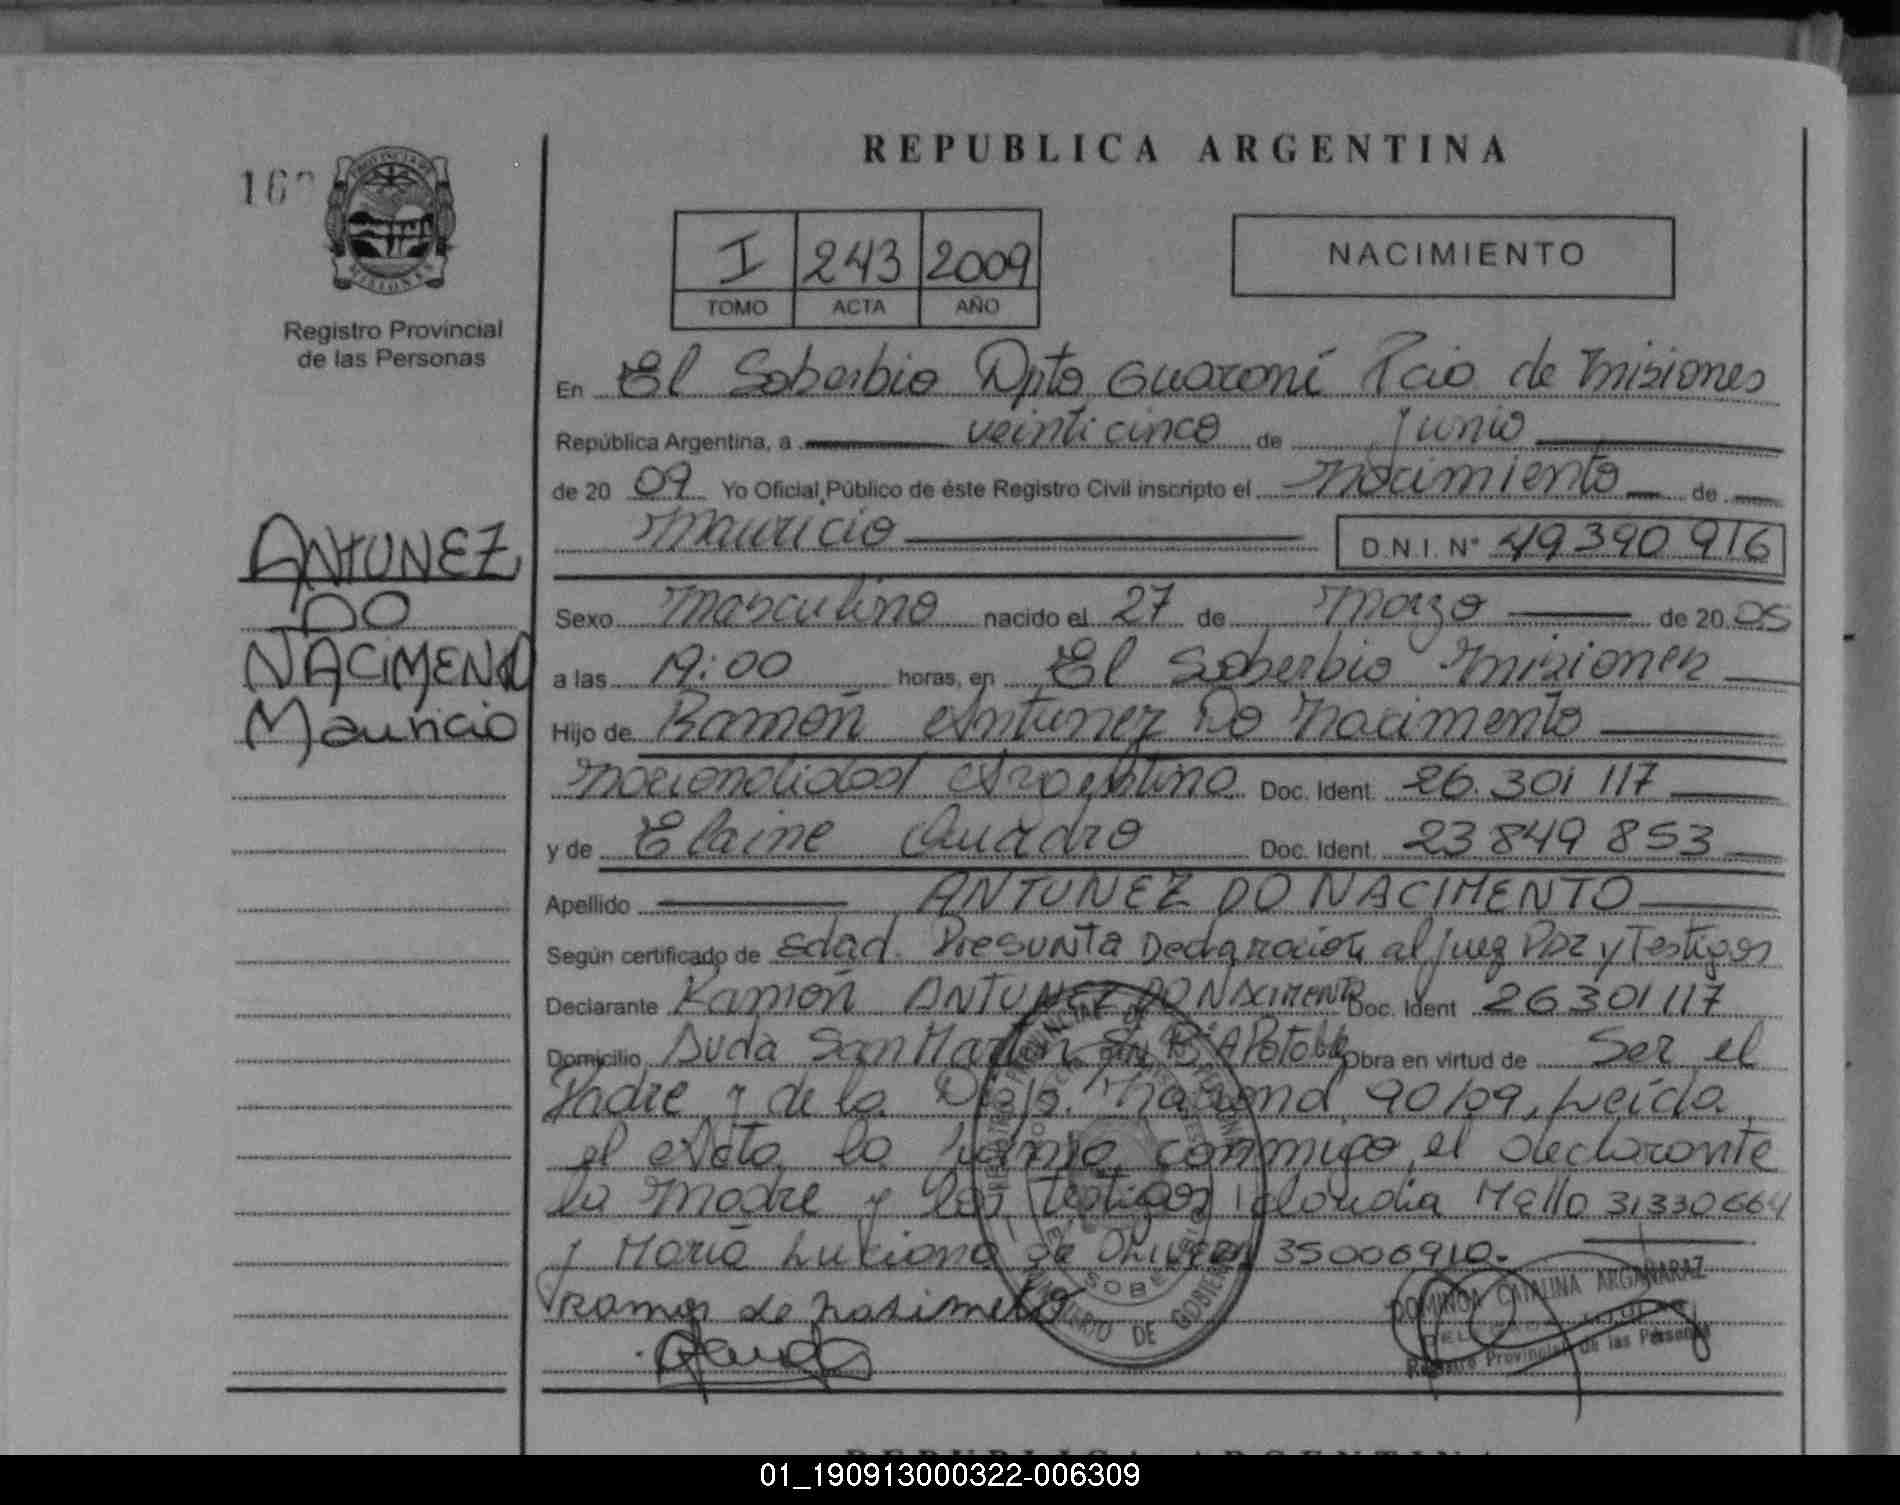 REPUBLICA ARGENTINA
PROVINCIA DE
MISIONES
Registro Provincial
de las Personas
I 243 2009
TOMO ACTA AÑO
NACIMIENTO
En El Soberbio Dpto Guaraní Pcia de Misiones
República Argentina, a veinticinco de Junio
de 20 09 Yo Oficial Público de éste Registro Civil inscripto el Nacimiento de
Mauricio D.N.I. N° 49 390 916
ANTUNEZ
DO
NACIMENTO
Mauricio
Sexo Masculino nacido el 27 de Marzo de 20 05
a las 19:00 horas, en El Soberbio Misiones
Hijo de Ramón Antunez Do Nacimento
Nacionalidad Argentina Doc. Ident. 26.301 117
y de Elaine Quadro Doc. Ident. 23 849 853
Apellido ANTUNEZ DO NACIMENTO
Según certificado de Edad Presunta Declaración al Juez Paz y Testigos
Declarante Ramón ANTUNEZ DO NACIMENTO Doc. Ident 26 301 117
Domicilio Avda San Martín S/N Bº A Potable Obra en virtud de Ser el
Padre y de la Nacional 90/09, Leída
el Acta la firma conmigo, el declarante
la Madre y los testigos Claudia Mello 31330664
y María Luciana de Olivera 35006910.
Ramon de nasimeto
DOMINGA CATALINA ARGAÑARAZ
Registro Provincial de las Personas
REGISTRO PROVINCIAL DE LAS PERSONAS
EL SOBERBIO
MINISTERIO DE GOBIERNO
REPUBLICA ARGENTINA
01_190913000322-006309